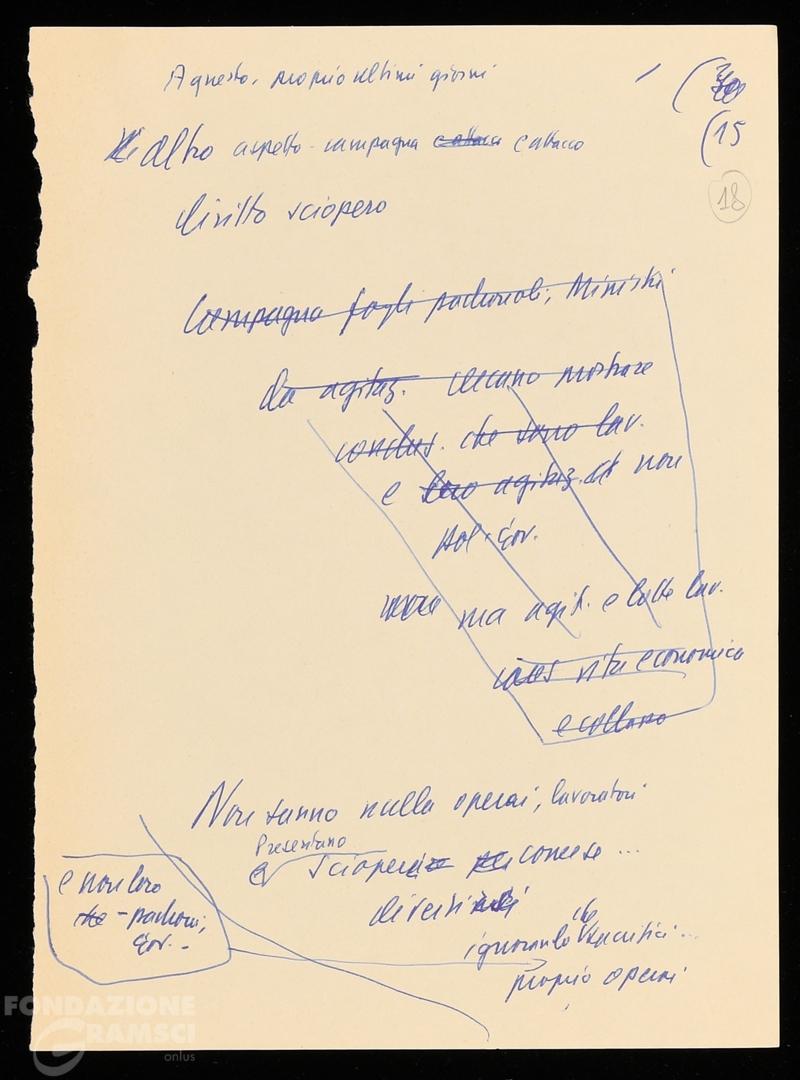 A questo - proprio ultimi giorni
(15
18
altro aspetto - campagna e attacco
diritto sciopero
Campagna fogli padronali, Ministri
da agitaz. cercano mostrare
conclus. che sono lav.
e loro agitaz. e non
pol. gov.
ma agit. e lotte lav.
vita economica
e collasso
Non sanno nulla operai, lavoratori
Presentano
e scioperi come se ...
diversi
ignorando che sacrifici ...
proprio operai
e non loro
che - padroni,
gov. -
FONDAZIONE
GRAMSCI
onlus